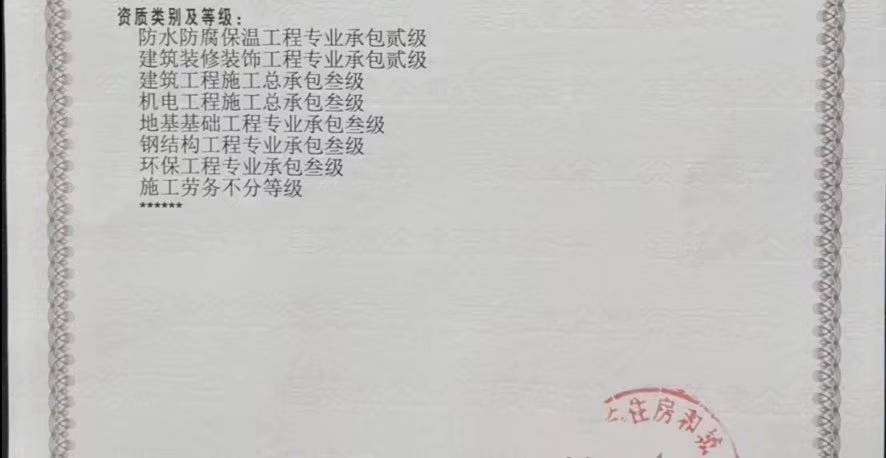 资质类别及等级：
防水防腐保温工程专业承包贰级
建筑装修装饰工程专业承包贰级
建筑工程施工总承包叁级
机电工程施工总承包叁级
地基基础工程专业承包叁级
钢结构工程专业承包叁级
环保工程专业承包叁级
施工劳务不分等级
******
住房和